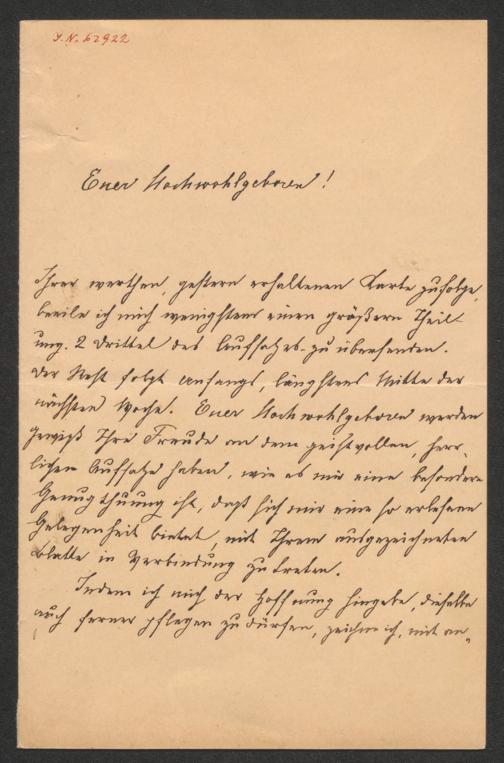 J. N. 62922
Euer Hochwohlgeboren!
Ihrer werthen, gestern erhaltenen Karte zufolge,
beeile ich mich wenigstens einen größern Theil
ung. 2 Drittel des Aufsatzes zu übersenden.
Der Rest folgt anfangs, längstens Mitte der
nächsten Woche. Euer Hochwohlgeboren werden
gewiß Ihre Freude an dem geistvollen, herr-
lichen Aufsatze haben, wie es mir eine besondere
Genugthuung ist, daß sich mir eine so erlesene
Gelegenheit bietet, mit Ihrem ausgezeichneten
Blatte in Verbindung zu treten.
Indem ich mich der Hoffnung hingebe, dieselbe
auch ferner pflegen zu dürfen, zeichne ich, mit an-